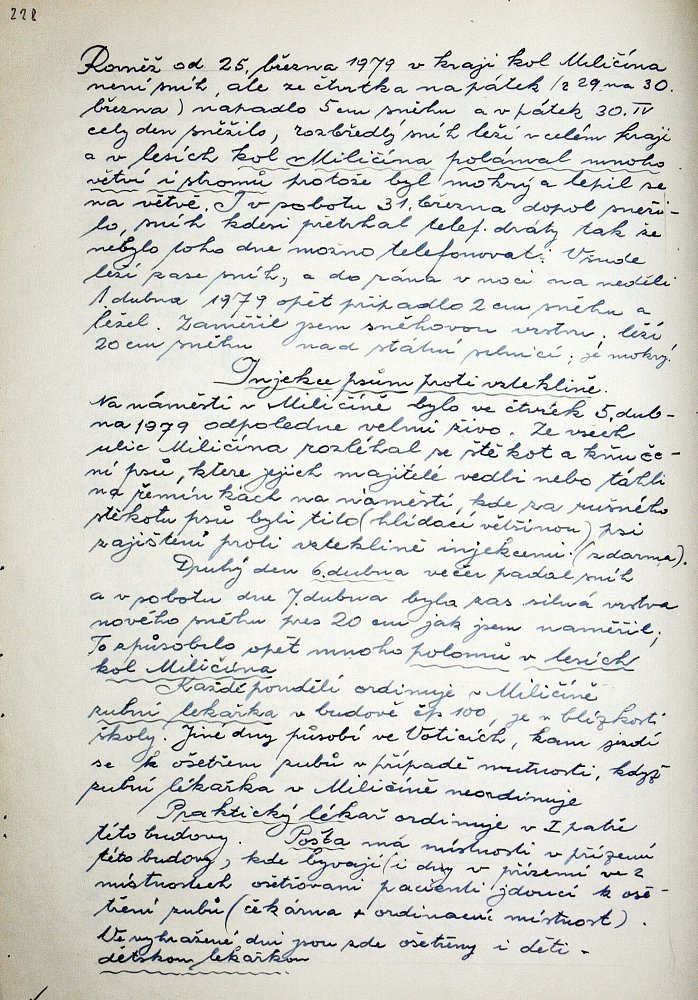 228
Rovněž od 25. března 1979 v kraji kol Miličína
není sníh, ale ze čtvrtka na pátek (z 29. na 30.
března) napadlo 5 cm sněhu a v pátek 30. IV
celý den sněžilo, rozbředlý sníh leží v celém kraji
a v lesích kol v Miličína polámal mnoho
větví i stromů protože byl mokrý a lepil se
na větvě. I v sobotu 31. března dopol sněži-
lo, sníh kdesi přetrhal telef. dráty tak že
nebylo toho dne možno telefonovat. Všude
leží zase sníh, a do rána v noci na neděli
1 dubna 1979 opět připadlo 2 cm sněhu a
ležel. Zaměřil jsem sněhovou vrstvu: leží
20 cm sněhu nad státní silnicí; je mokrý.
Injekce psům proti vzteklině.
Na náměstí v Miličíně bylo ve čtvrtek 5. dub-
na 1979 odpoledne velmi živo. Ze všech
ulic Miličína rozléhal se štěkot a knuče-
ní psů, které jejich majitelé vedli nebo táhli
na řemínkách na náměstí, kde za rušného
štěkotu psů byli tito (hlídací většinou) psi
zajištěni proti vzteklině injekcemi. (zdarma).
Druhý den 6. dubna večer padal sníh
a v sobotu dne 7. dubna byla zas silná vrstva
nového sněhu přes 20 cm jak jsem naměřil;
To způsobilo opět mnoho polomů v lesích
kol Miličína
Každé pondělí ordinuje v Miličíně
zubní lékařka v budově čp 100, je v blízkosti
školy. Jiné dny působí ve Voticích, kam jezdí
se k ošetření zubů v případě nutnosti, když
zubní lékařka v Miličíně neordinuje
Praktický lékař ordinuje v I patře
této budovy. Pošta má místnosti v přízemí
této budovy, kde bývají (i dny v přízemí ve 2
místnostech ošetřovani pacienti jdoucí k oše-
tření zubů (čekárna + ordinační místnost).
Ve vyhražené dni jsou zde ošetřeny i děti -
dětskou lékařkou